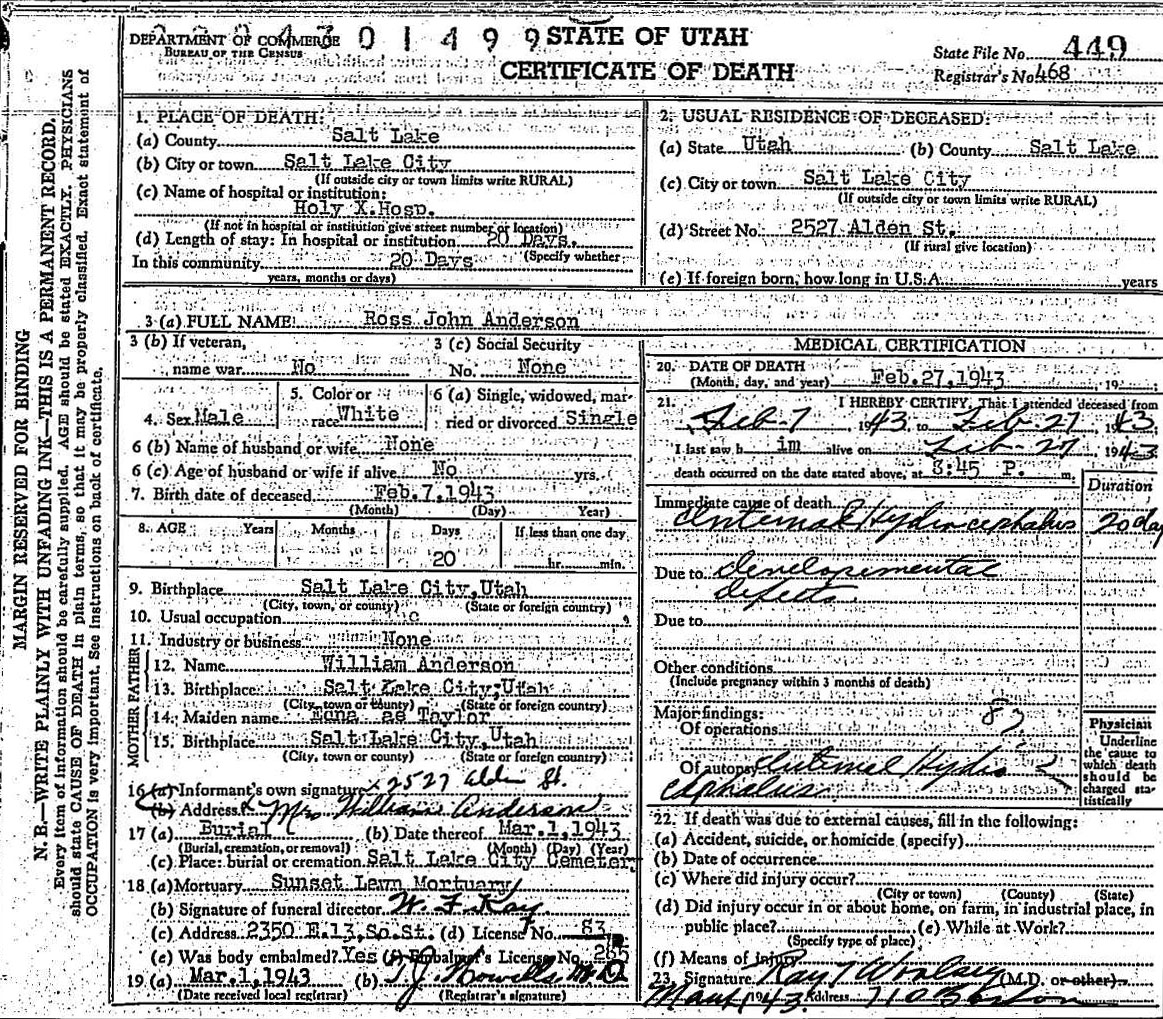 DEPARTMENT OF COMMERCE
BUREAU OF THE CENSUS
4 3 0 1 4 9 9
STATE OF UTAH
CERTIFICATE OF DEATH
State File No. 449
Registrar's No. 468
MARGIN RESERVED FOR BINDING
N. B.—WRITE PLAINLY WITH UNFADING INK—THIS IS A PERMANENT RECORD.
Every item of information should be carefully supplied. AGE should be stated EXACTLY. PHYSICIANS
should state CAUSE OF DEATH in plain terms, so that it may be properly classified. Exact statement of
OCCUPATION is very important. See instructions on back of certificate.
1. PLACE OF DEATH:
(a) County Salt Lake
(b) City or town Salt Lake City
(If outside city or town limits write RURAL)
(c) Name of hospital or institution:
Holy X.Hosp.
(If not in hospital or institution give street number or location)
(d) Length of stay: In hospital or institution 20 Days.
(Specify whether
In this community 20 Days
years, months or days)
2. USUAL RESIDENCE OF DECEASED:
(a) State Utah (b) County Salt Lake
(c) City or town Salt Lake City
(If outside city or town limits write RURAL)
(d) Street No. 2527 Alden St.
(If rural give location)
(e) If foreign born, how long in U.S.A. years
3 (a) FULL NAME Ross John Anderson
3 (b) If veteran, name war No
3 (c) Social Security No. None
4. Sex Male
5. Color or race White
6 (a) Single, widowed, married or divorced Single
6 (b) Name of husband or wife None
6 (c) Age of husband or wife if alive No yrs.
7. Birth date of deceased Feb.7,1943
(Month) (Day) Year)
8. AGE Years Months Days If less than one day
20 hr. min.
9. Birthplace Salt Lake City,Utah
(City, town, or county) (State or foreign country)
10. Usual occupation
11. Industry or business None
FATHER
12. Name William Anderson
13. Birthplace Salt Lake City,Utah
(City, town or county) (State or foreign country)
MOTHER
14. Maiden name Mona ae Taylor
15. Birthplace Salt Lake City,Utah
(City, town or county) (State or foreign country)
16 (a) Informant's own signature x 2527 Alden St.
(b) Address x Mrs William Anderson
17 (a) Burial (b) Date thereof Mar.1,1943
(Burial, cremation, or removal) (Month) (Day) (Year)
(c) Place: burial or cremation Salt Lake City Cemetery
18 (a) Mortuary Sunset Lawn Mortuary
(b) Signature of funeral director W. F. Ray
(c) Address 2350 E.13,So.St. (d) License No. 83
(e) Was body embalmed? Yes (f) Embalmer's License No. 265
19 (a) Mar.1,1943 (b) T J Howells M D
(Date received local registrar) (Registrar's signature)
MEDICAL CERTIFICATION
20. DATE OF DEATH
(Month, day, and year) Feb.27,1943 19
21. I HEREBY CERTIFY, That I attended deceased from
Feb-7 1943 to Feb-27 1943
I last saw h im alive on Feb-27 1943
death occurred on the date stated above, at 3:45 P. m.
Duration
Immediate cause of death
Internal Hydrocephalus 20 day
Due to developmental
defects
Due to
Other conditions
(Include pregnancy within 3 months of death)
Major findings:
Of operations
Of autopsy Internal Hydro
cephalus
Physician
Underline the cause to which death should be charged statistically
22. If death was due to external causes, fill in the following:
(a) Accident, suicide, or homicide (specify)
(b) Date of occurrence
(c) Where did injury occur?
(City or town) (County) (State)
(d) Did injury occur in or about home, on farm, in industrial place, in
public place? (e) While at Work?
(Specify type of place)
(f) Means of injury
23. Signature Ray T Woolsey (M.D. or other)
1943 Address